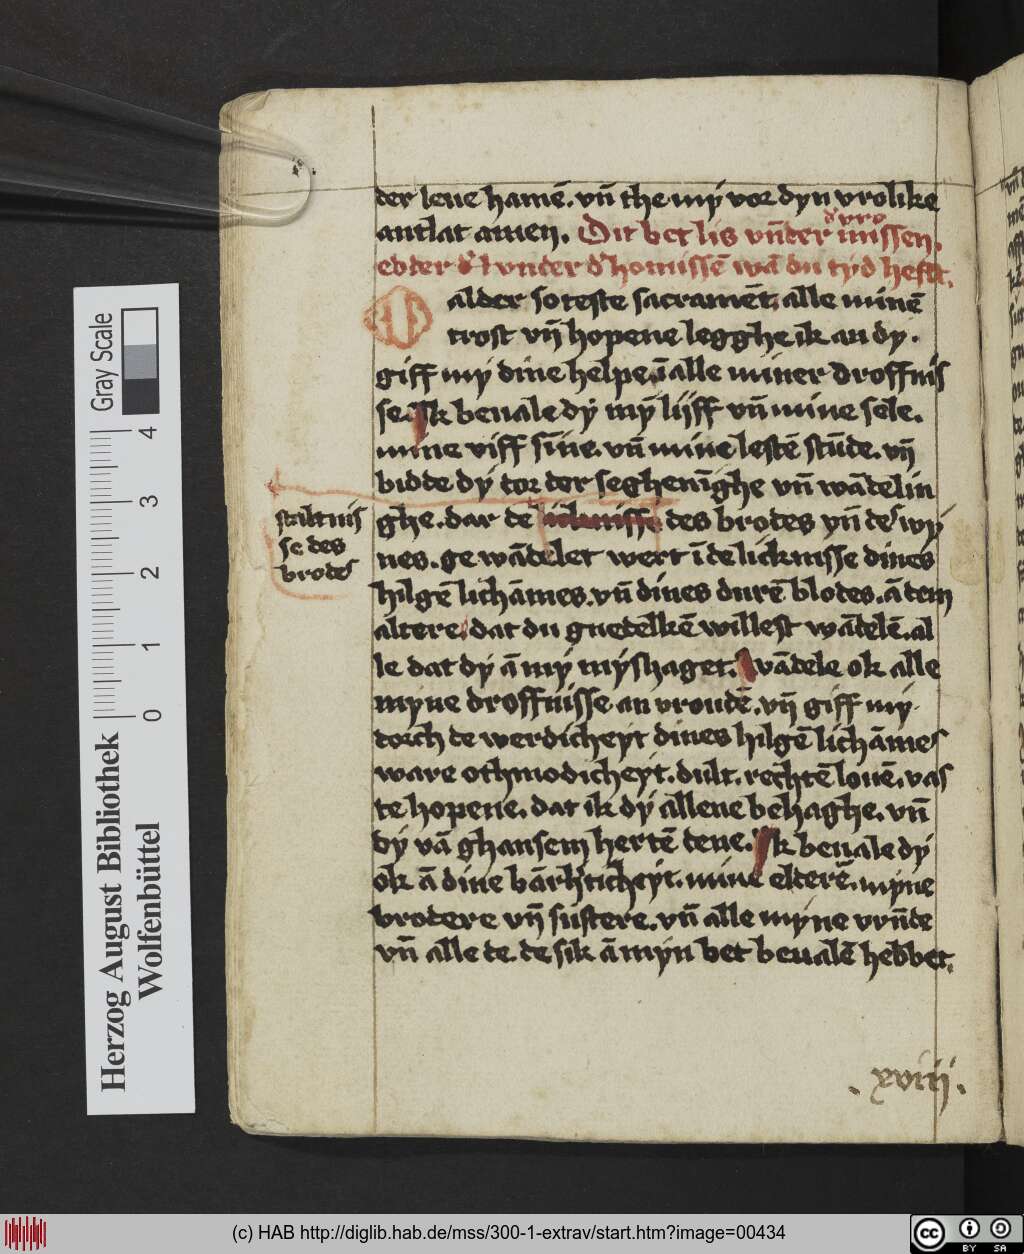 der leue hamē. vn̄ the my̋ vor dyn vrolike
antlat amen. Dit bet lis vn̄der d' vro missen.
edder d' vnder d' homissē wā du tyd hefst.
alder soteste sacramēt. alle minē
trost vn̄ hopene legghe ik an dy.
giff my̋ dine helpe. ī alle miner droffnis
se. Ik beuale dy̋ my̋ lijff vn̄ mine sele.
mine viff sīne. vn̄ mine lestē stūde. vn̄
bidde dy̋ tor der seghenīghe vn̄ wādelin
ghe. dar de licknisse des brodes vn̄ des wy̋
nes. ge wādelet wert ī de licknisse dines
hilgē lichāmes. vn̄ dines durē blodes. ā dem
altere. dat du gnedelkē willest wādelē. al
le dat dy̋ ā my̋ myshaget. Wādele ok alle
myne droffnisse an vroudē. vn̄ giff my̋.
dorch de werdicheyt dines hilgē lichāmes
ware othmodicheyt. dult. rechtē louē. vas
te hopene. dat ik dy̋ allene behaghe. vn̄
dy̋ vā ghansem hertē dene. Ik beuale dy̋
ok ā dine bārh'ticheyt. mine elderē. myne
brodere vn̄ sustere. vn̄ alle myne vrūde
vn̄ alle de. de sik ā myn bet beualē hebbet.
staltnis
se des
brodes
. xviij .
Herzog August Bibliothek
Wolfenbüttel
Gray Scale
0 1 2 3 4
(c) HAB http://diglib.hab.de/mss/300-1-extrav/start.htm?image=00434
cc BY SA